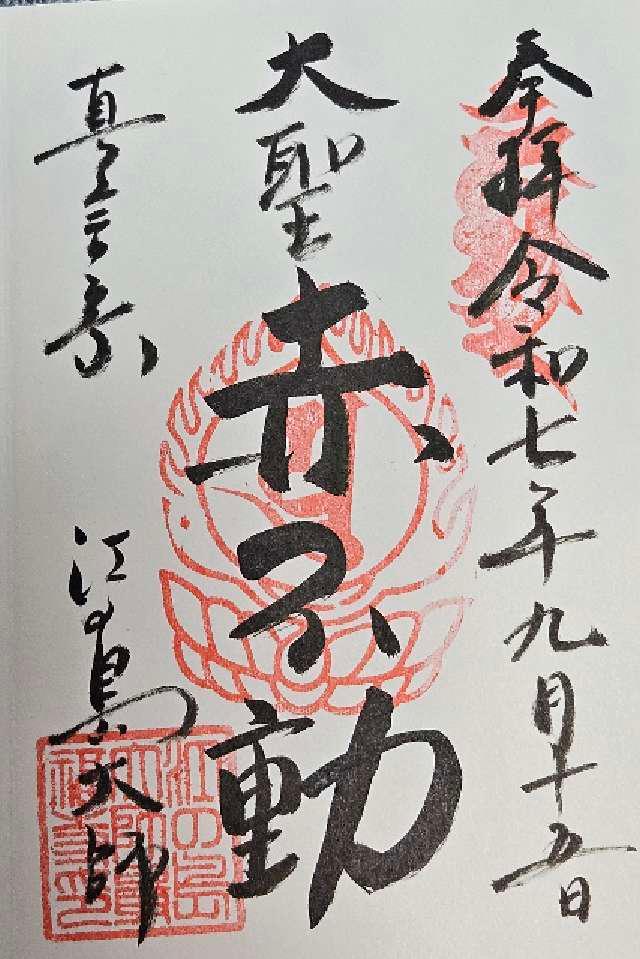 奉拝 令和七年九月十五日
大聖 赤不動
真言宗 江の島大師